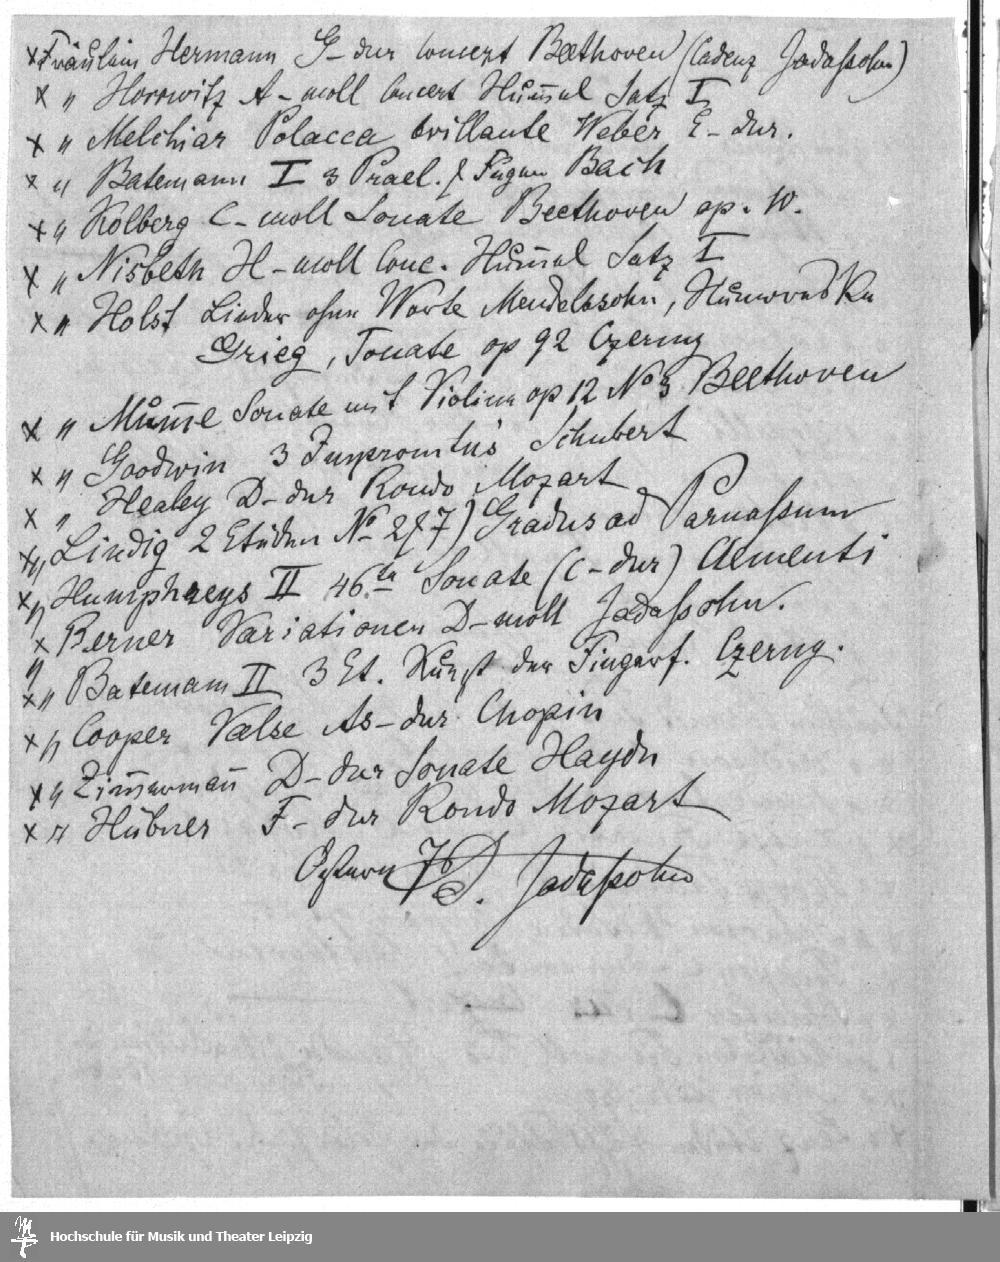 x Fräulein Hermann G-dur Concert Beethoven (Cadenz Jadassohn)
x " Horrwitz A-moll Concert Hum̅el Satz I
x " Melchiar Polacca brillante Weber E-dur.
x " Batemann I 3 Prael. & Fugen Bach
x " Kolberg C-moll Sonate Beethoven op. 10.
x " Nisbeth H-moll Conc. Hum̅el Satz I
x " Holst Lieder ohne Worte Mendelssohn, Humoreske
Grieg, Sonate op 92 Czerny
x " Mum̅e Sonate mit Violine op 12 No 3 Beethoven
x " Goodwin 3 Impromtu's Schubert
x " Healey D-dur Rondo Mozart
x " Lindig 2 Etüden No 2 & 7) Gradus ad Parnassum
x " Humphreys II 46.te Sonate (C-dur) Clementi
x " Berner Variationen D-moll Jadassohn.
x " Batemann II 3 Et. Kunst der Fingerf. Czerny.
x " Cooper Valse As-dur Chopin
x " Zim̅erman̅ D-dur Sonate Haydn
x " Hübner F-dur Rondo Mozart
Ostern 78 S. Jadassohn
Hochschule für Musik und Theater Leipzig